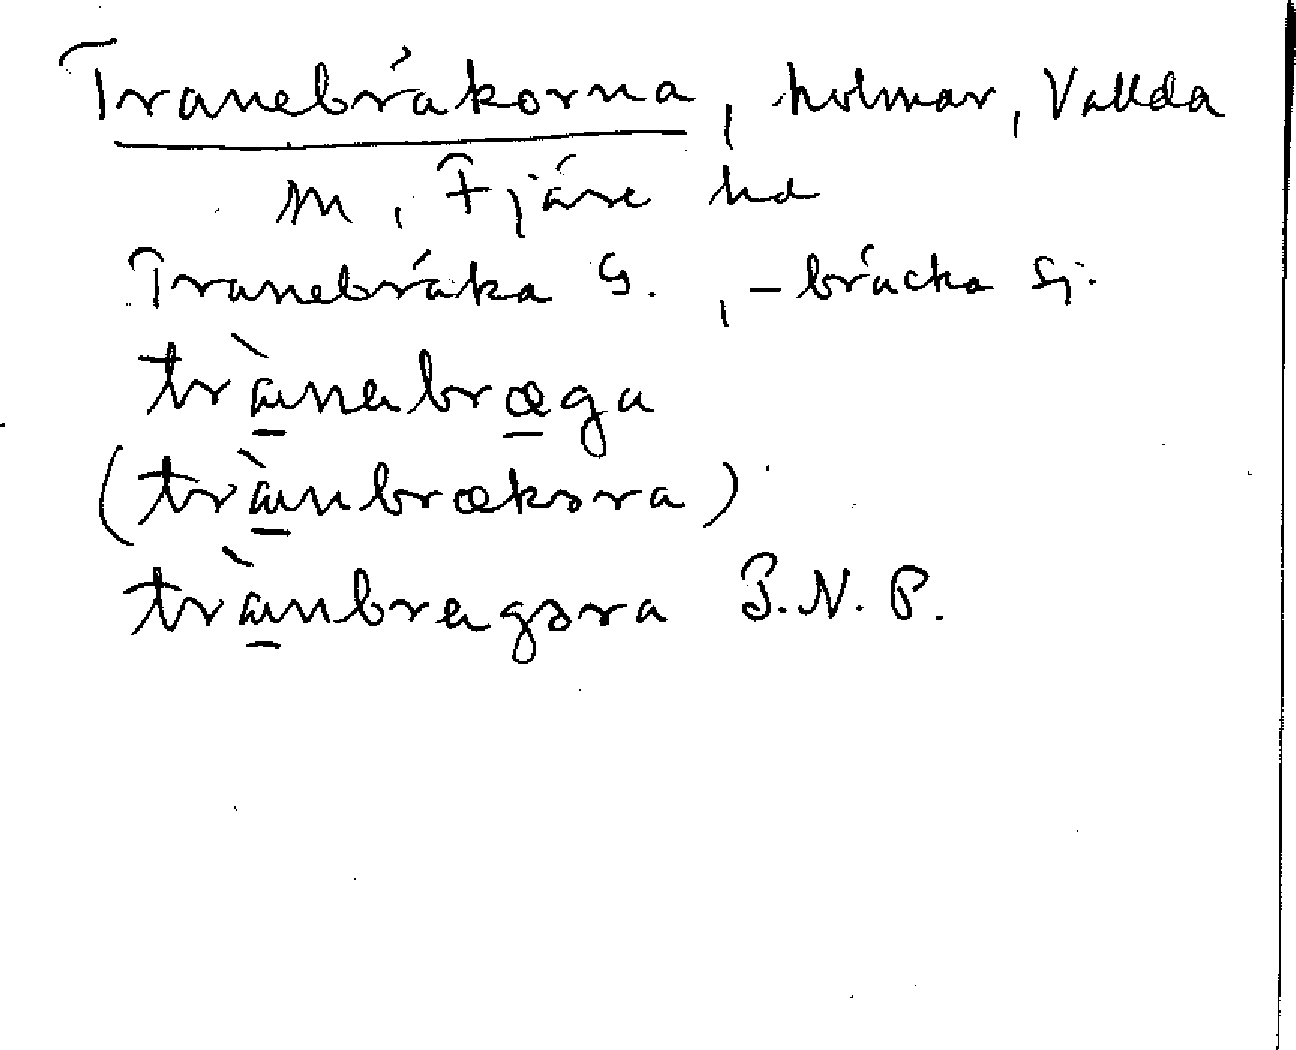 Tranebräkorna, holmar, Vallda
sn, Fjäre hd
Tranebräka G., -bräcka Sj.
trànabræga
(trànbrækɔra)
trànbragɔra P.N.P.